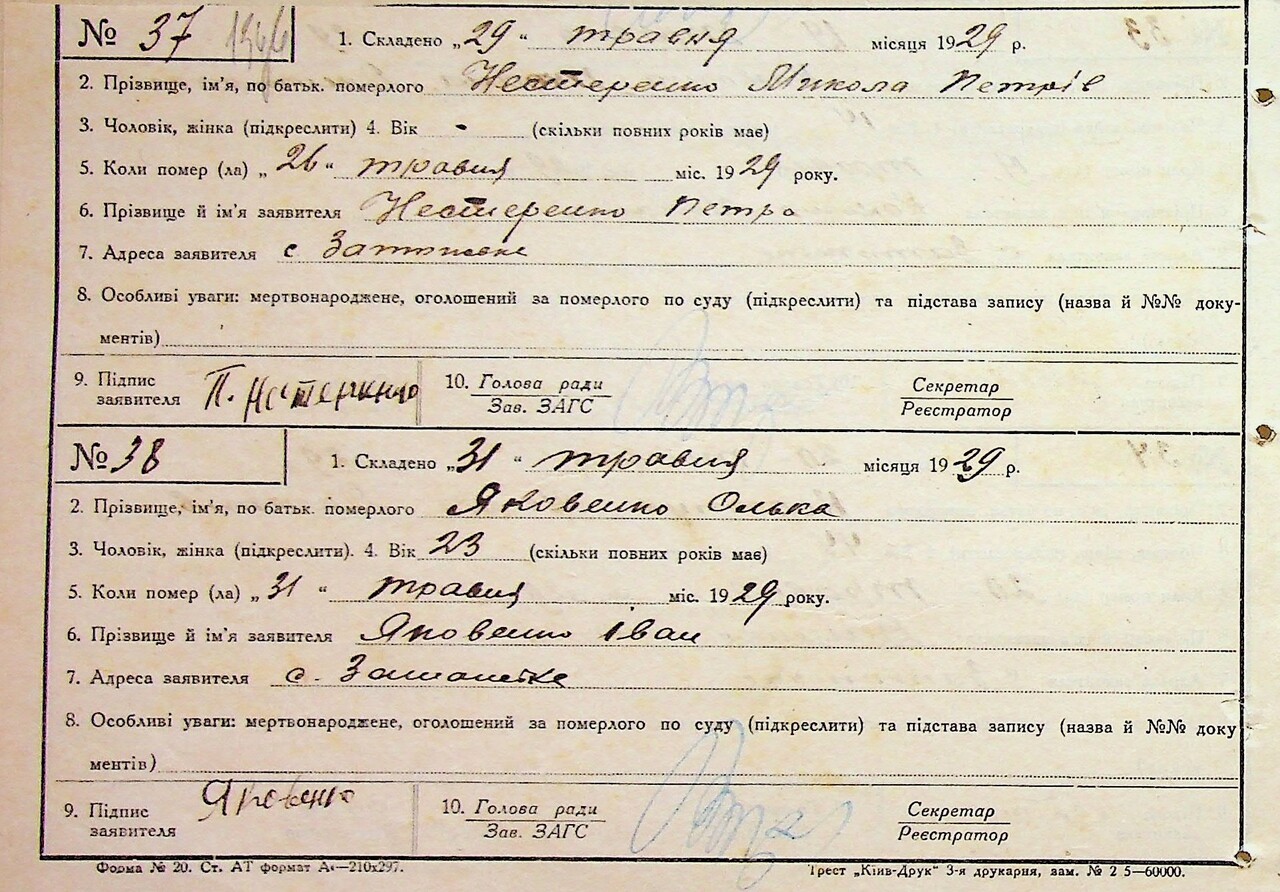 № 37 1. Складено „29“ травня місяця 1929 р.
2. Прізвище, ім'я, по батьк. померлого Нестеренко Микола Петрів
3. Чоловік, жінка (підкреслити) 4. Вік - (скільки повних років має)
5. Коли помер (ла) „26“ травня міс. 1929 року.
6. Прізвище й ім'я заявителя Нестеренко Петро
7. Адреса заявителя с
8. Особливі уваги: мертвонароджене, оголошений за померлого по суду (підкреслити) та підстава запису (назва й №№ доку-
ментів)
9. Підпис заявителя П. Нестеренко 10. Голова ради Секретар
Зав. ЗАГС Реєстратор
№ 38 1. Складено „31“ травня місяця 1929 р.
2. Прізвище, ім'я, по батьк. померлого Яковенко Олька
3. Чоловік, жінка (підкреслити). 4. Вік 23 (скільки повних років має)
5. Коли помер (ла) „31“ травня міс. 1929 року.
6. Прізвище й ім'я заявителя Яковенко Іван
7. Адреса заявителя с.
8. Особливі уваги: мертвонароджене, оголошений за померлого по суду (підкреслити) та підстава запису (назва й №№ доку
ментів)
9. Підпис заявителя Яковенко 10. Голова ради Секретар
Зав. ЗАГС Реєстратор
Форма № 20. Ст. АТ формат А4—210х297. Трест „Київ-Друк“ 3-я друкарня, зам. № 2 5—60000.